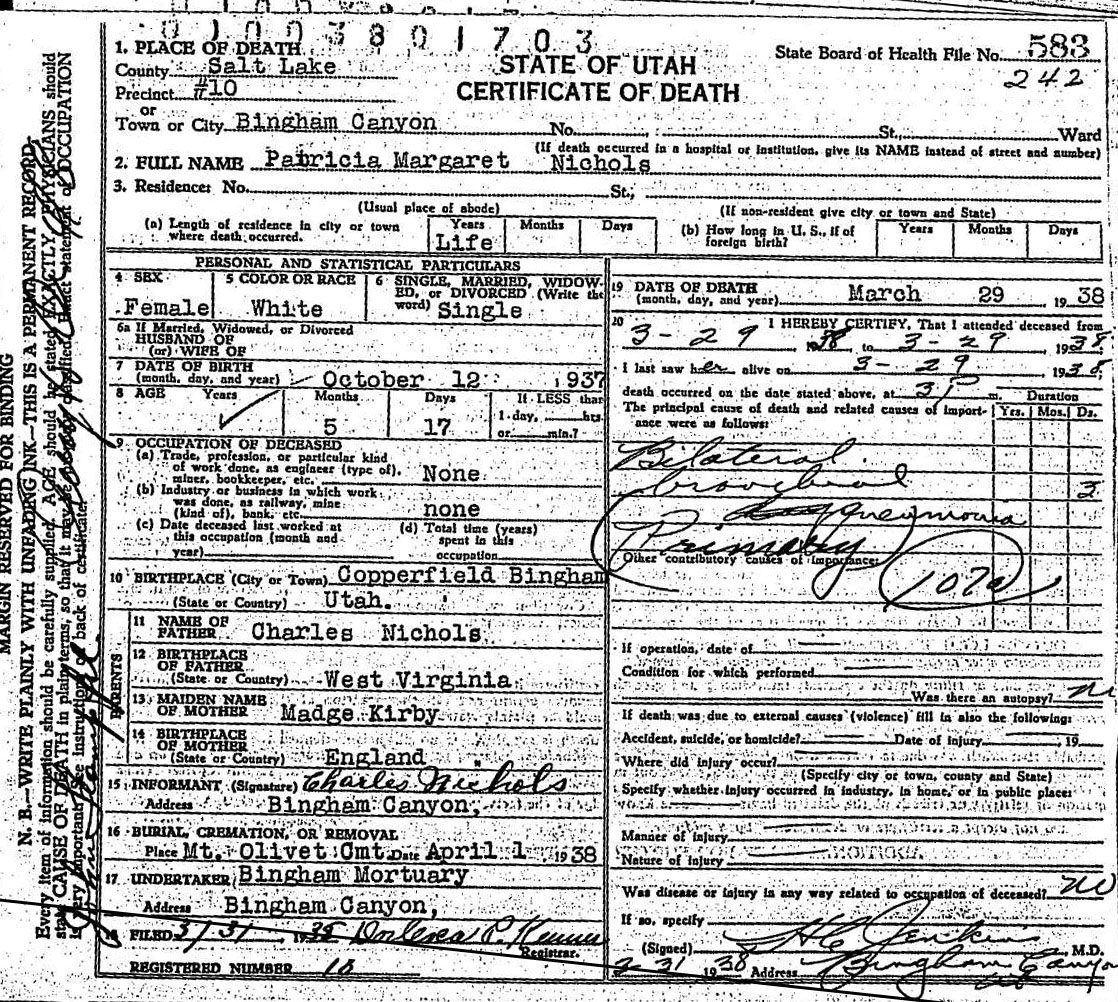 0 1 0 0 3 8 0 1 7 0 3
1. PLACE OF DEATH
County Salt Lake
Precinct #10
or
Town or City Bingham Canyon No. St., Ward
STATE OF UTAH
CERTIFICATE OF DEATH
State Board of Health File No. 583
242
(If death occurred in a hospital or institution, give its NAME instead of street and number)
2. FULL NAME Patricia Margaret Nichols
3. Residence: No. St.,
(Usual place of abode) (If non-resident give city or town and State)
(a) Length of residence in city or town where death occurred. Years Months Days
Life
(b) How long in U. S., if of foreign birth? Years Months Days
PERSONAL AND STATISTICAL PARTICULARS
4 SEX 5 COLOR OR RACE 6 SINGLE, MARRIED, WIDOWED, or DIVORCED (Write the word)
Female White Single
6a If Married, Widowed, or Divorced
HUSBAND OF
(or) WIFE OF
7 DATE OF BIRTH
(month, day, and year) October 12 1937
8 AGE Years Months Days If LESS than
1 day, hrs.
5 17 or min.?
9 OCCUPATION OF DECEASED
(a) Trade, profession, or particular kind
of work done, as engineer (type of),
miner, bookkeeper, etc. None
(b) Industry or business in which work
was done, as railway, mine
(kind of), bank, etc. none
(c) Date deceased last worked at
this occupation (month and
year)
(d) Total time (years)
spent in this
occupation
10 BIRTHPLACE (City or Town) Copperfield Bingham
(State or Country) Utah.
PARENTS
11 NAME OF
FATHER Charles Nichols
12 BIRTHPLACE
OF FATHER
(State or Country) West Virginia
13 MAIDEN NAME
OF MOTHER Madge Kirby
14 BIRTHPLACE
OF MOTHER
(State or Country) England
15 INFORMANT (Signature) Charles Nichols
Address Bingham Canyon,
16 BURIAL, CREMATION, OR REMOVAL
Place Mt. Olivet Cmt. Date April 1 1938
17 UNDERTAKER Bingham Mortuary
Address Bingham Canyon,
18 FILED 3/31 1938
Registrar.
REGISTERED NUMBER 18
19 DATE OF DEATH
(month, day, and year) March 29 1938
20 I HEREBY CERTIFY, That I attended deceased from
3-29 1938 to 3-29, 1938.
I last saw her alive on 3-29 1938.
death occurred on the date stated above, at 3 P m. Duration
The principal cause of death and related causes of importance were as follows: Yrs. Mos. Ds.
Bilateral
bronchial 3
pneumonia
Primary
Other contributory causes of importance:
107a
If operation, date of
Condition for which performed
Was there an autopsy? no
If death was due to external causes (violence) fill in also the following:
Accident, suicide, or homicide? Date of injury 19
Where did injury occur?
(Specify city or town, county and State)
Specify whether injury occurred in industry, in home, or in public place:
Manner of injury
Nature of injury
Was disease or injury in any way related to occupation of deceased? no
If so, specify
(Signed) H C Jenkins M.D.
3-31 1938 Address Bingham Canyon
MARGIN RESERVED FOR BINDING
N. B.—WRITE PLAINLY WITH UNFADING INK—THIS IS A PERMANENT RECORD.
Every item of information should be carefully supplied. AGE should be stated EXACTLY. PHYSICIANS should
state CAUSE OF DEATH in plain terms, so that it may be properly classified. Exact statement of OCCUPATION
is very important. See instructions on back of certificate.